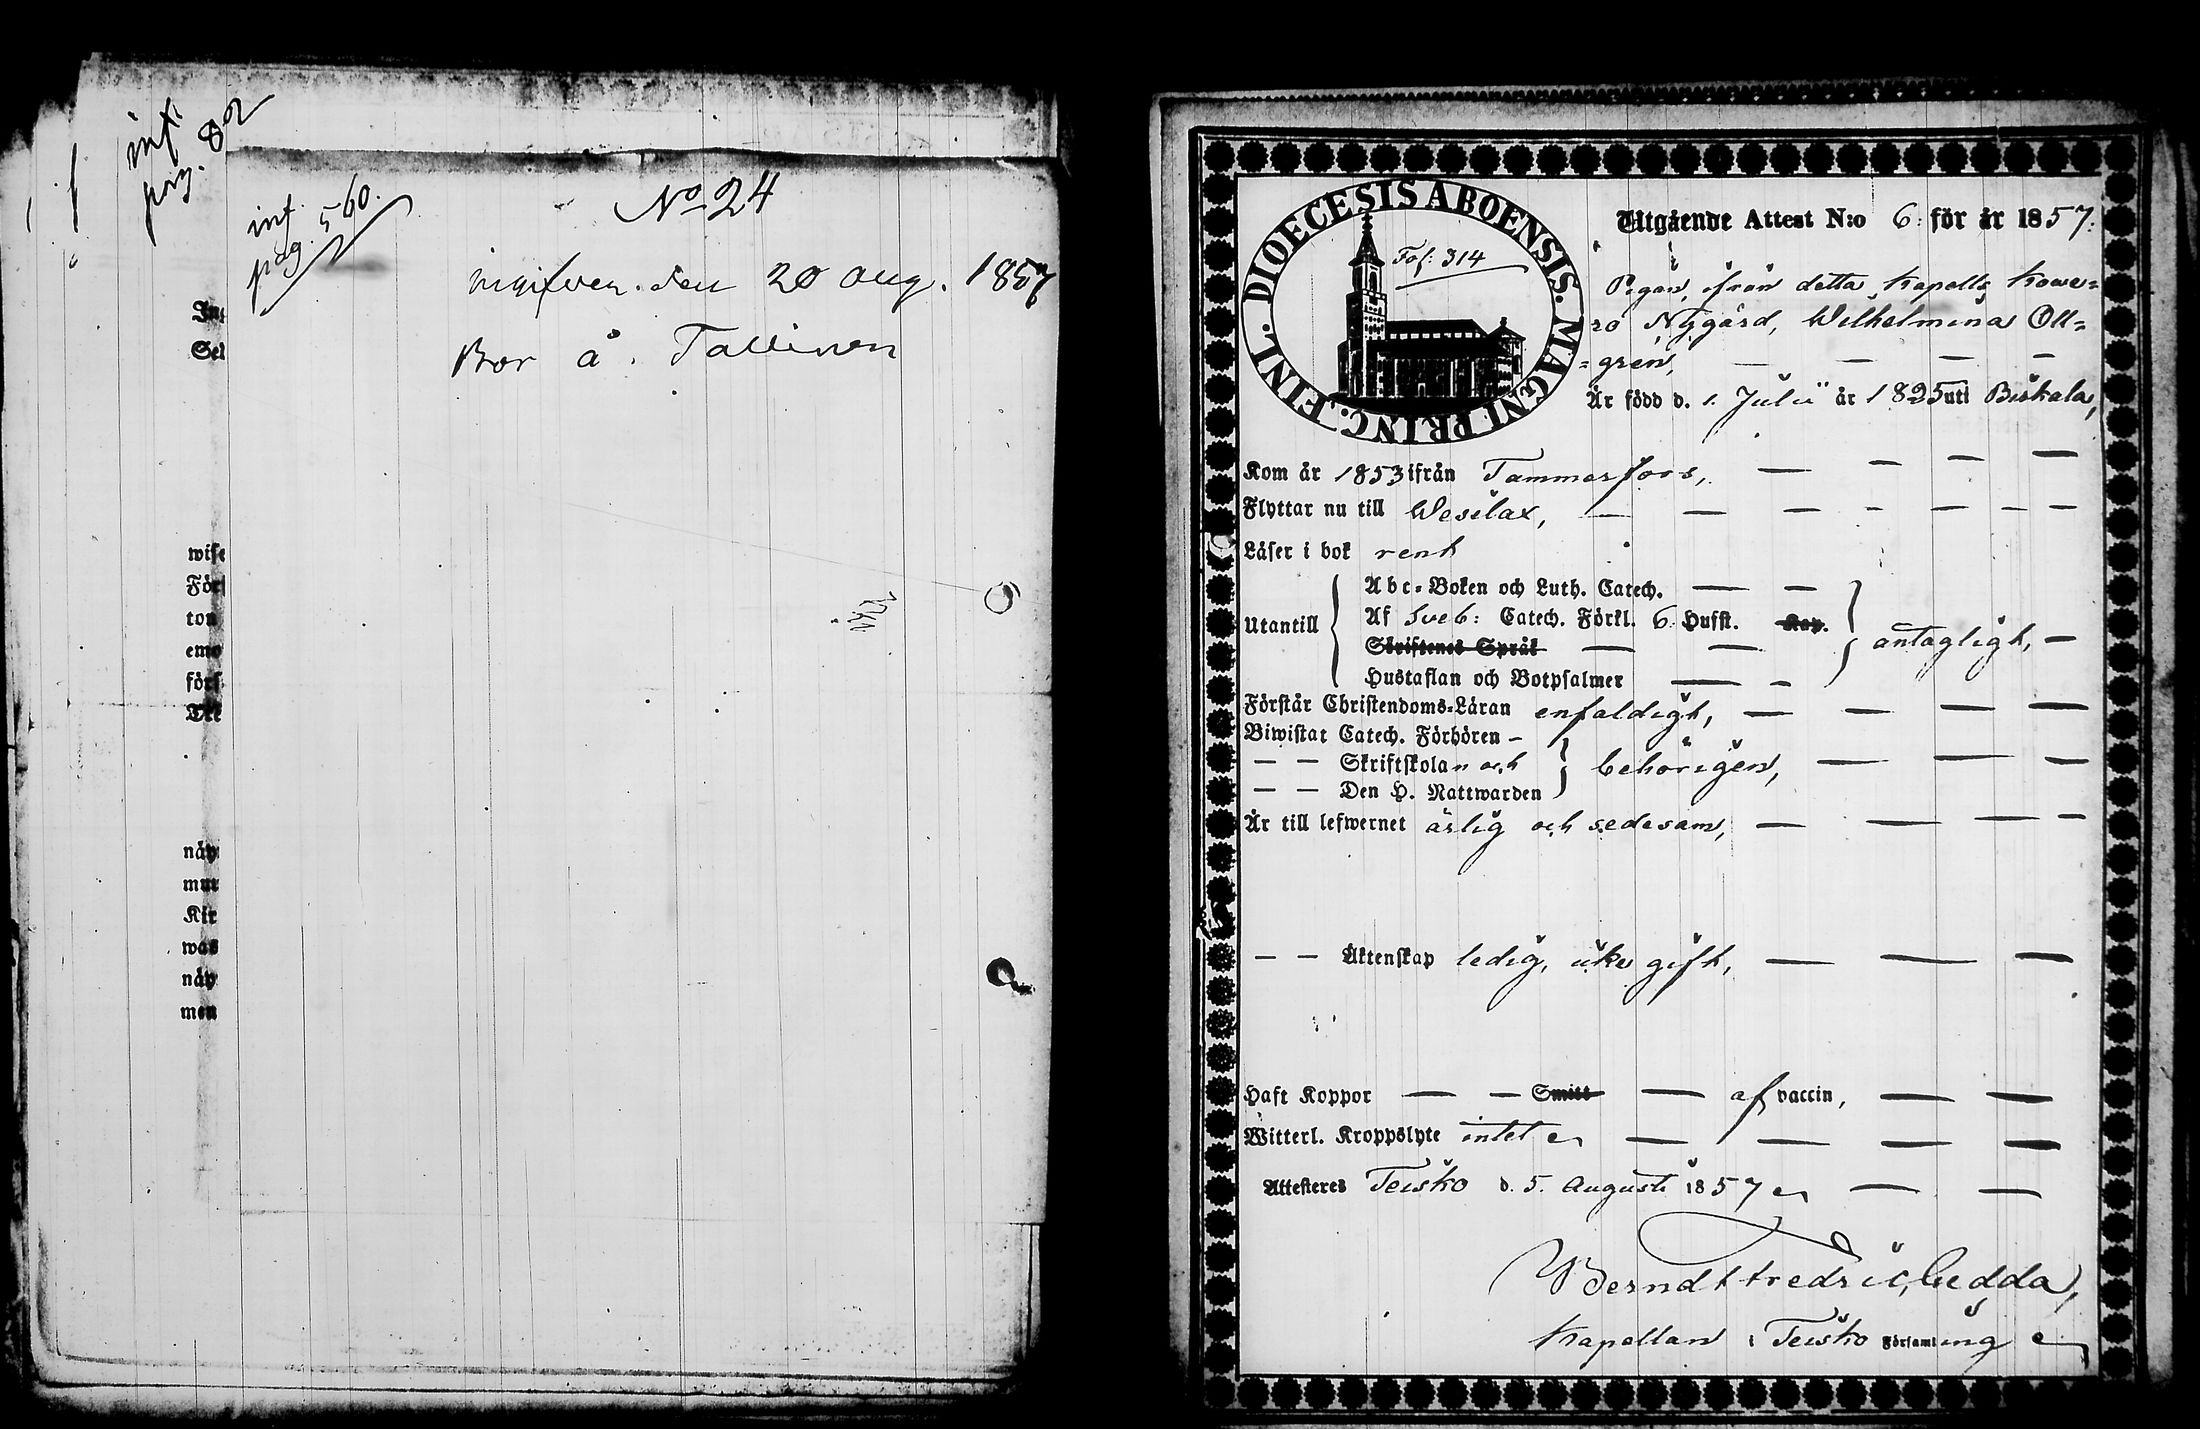 inf.
pag. 82
inf.
pag. 560.
No 24
ingifven. den 20 aug. 1857
Bor å Tallinen
In
Sei
wise
För
ton
emo
förs
Til
näp
mur
Kir
was
näp
men
DIOECESIS ABOENSIS. MAGNI PRINC. FINL.
Fol: 314
Utgående Attest N:o 6: för år 1857:
Pigan, ifrån detta Kapells Kowe=
ro Nygård, Wilhelmina Oll=
=gren, — — — —
Är född d. 1. Julii år 1825 uti Biskala,
Kom år 1853 ifrån Tammerfors, — — — —
Flyttar nu till Wesilax, — — — — — — —
Läser i bok rent
Utantill
Abc-Boken och Luth. Catech. — —
Af Sveb: Catech. Förkl. 6 Hufst. Kap.
Skriftenes Språk — —
Hustaflan och Botpsalmer — —
antagligt, —
Förstår Christendoms-Läran enfaldigt, — — — —
Biwistat Catech. Förhören –
— — Skriftskolan och
— — Den H. Nattwarden
behörigen, — — —
Är till lefwernet ärlig och sedesam, — — — —
— — Äktenskap ledig, icke gift, — — —
Haft Koppor — — Smitt — af vaccin, — —
Witterl. Kroppslyte intet — — — —
Attesteres Teisko d. 5. Augusti 1857 — —
Berndt Fredric Gedda,
Kapellan i Teisko Församling